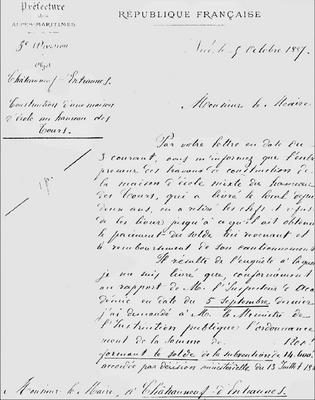 Préfecture
des
ALPES-MARITIMES
RÉPUBLIQUE FRANÇAISE
Division
Nice, le 5 Octobre
Objet
Châteauneuf-Entraunes.
Construction d'une maison
d'école au hameau des
Tours.
Monsieur le Maire
Par votre lettre en date du
3 courant, vous m'informez que l'entre
preneur des travaux de construction de
la maison d'école mixte du hameau
des Tours, qui a livré le local depuis
deux ans, en a retiré les clefs et refuse
de les livrer jusqu'à ce qu'il ait obtenu
le paiement du solde lui revenant et
le remboursement de son cautionnement
Il résulte de l'enquête à laquelle
je me suis livré que, conformément
au rapport de Mr. l'Inspecteur d'Aca
démie en date du 5 Septembre dernier
j'ai demandé à Mr. le Ministre de
l'Instruction publique l'ordonnance
ment de la somme de
formant le solde de la subvention de
accordée par décision ministérielle du 13 Juillet
Monsieur le Maire, à Châteauneuf d'Entraunes.